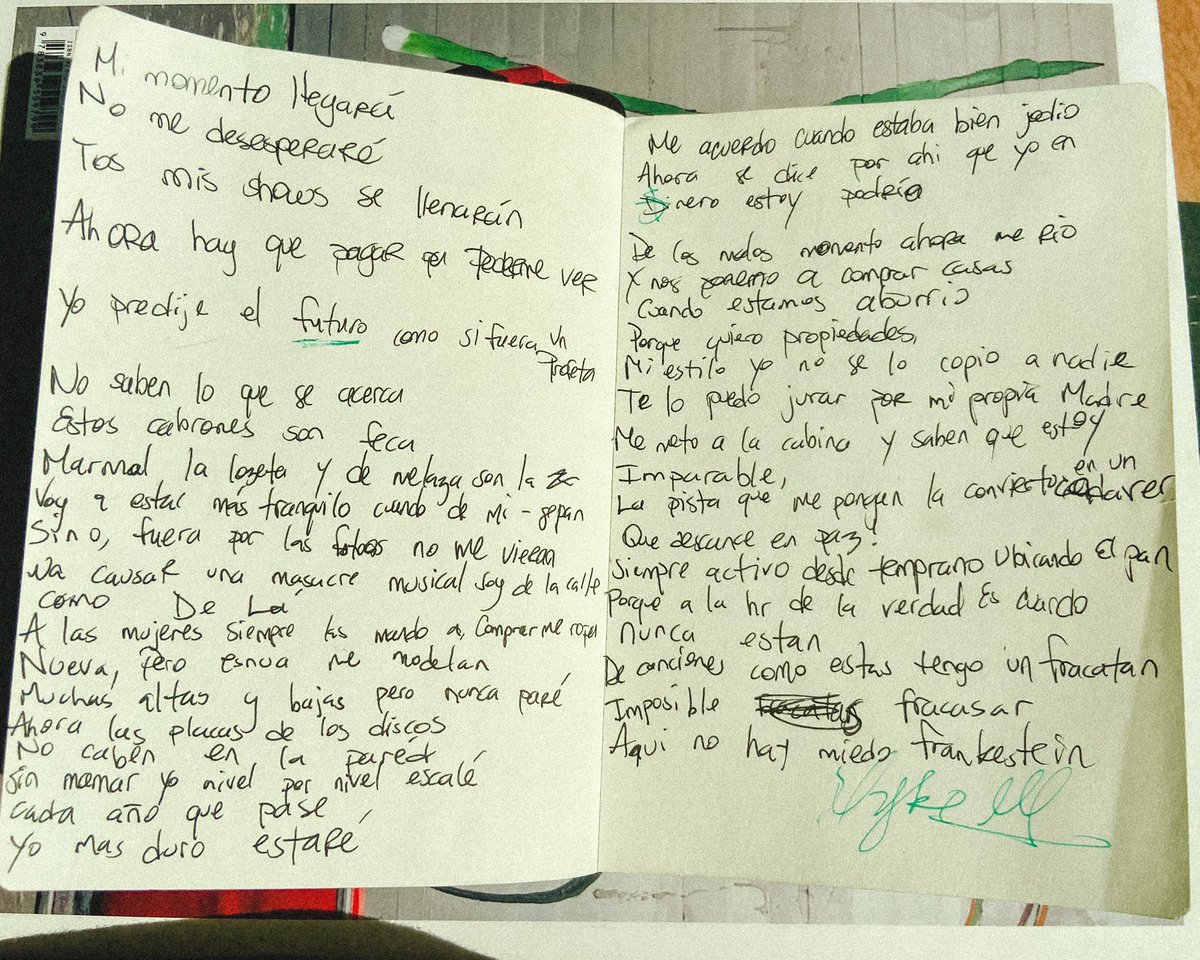 Mi momento llegará
No me desesperaré
Tos mis shows se llenarán
Ahora hay que pagar pa poderme ver
Yo predije el futuro como si fuera un
Profeta
No saben lo que se acerca
Estos cabrones son feca
Marmol la lozeta y de melaza son la
Voy a estar más tranquilo cuando de mi - sepan
Sino, fuera por las fotos no me vieran
Va causar una masacre musical soy de la calle
como De La
A las mujeres siempre las mando a, Comprarme ropa
Nueva, Pero esnua me modelan
Muchas altas y bajas pero nunca paré
Ahora las placas de los discos
No caben en la paréd
Sin mamar yo nivel por nivel escalé
Cada año que pase
Yo mas duro estaré
Me acuerdo cuando estaba bien jodio
Ahora se dice por ahi que yo en
Dinero estoy podrio
De los malos momento ahora me rio
Y nos ponemo a comprar casas
Cuando estamos aburrio
Porque quiero propiedades,
Mi estilo yo no se lo copio a nadie
Te lo puedo jurar por mi propia Madre
Me meto a la cabina y saben que estoy
Imparable,
La pista que me pongan la convierto en un
cadaver
Que descance en paz!
Siempre activo desde temprano ubicando El pan
Porque a la hr de la verdad Es cuando
nunca estan
De canciones como estas tengo un fracatan
Imposible fracasar
Aqui no hay miedo frankestein